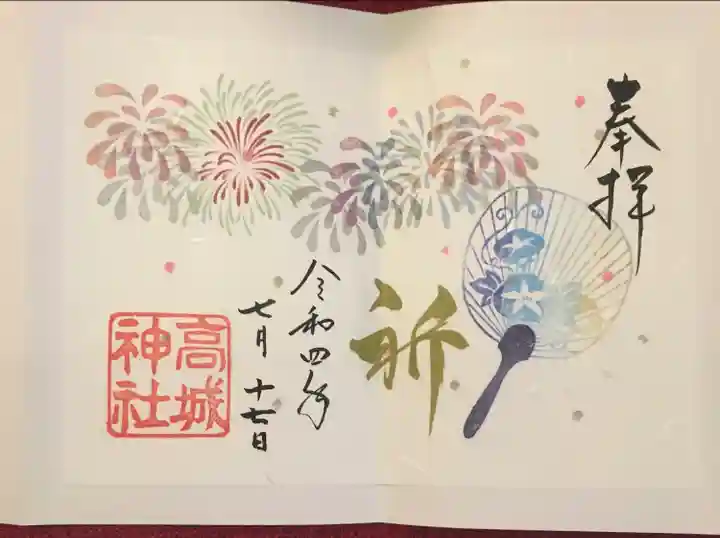 奉拝
祈
令和四年
七月十七日
高城
神社